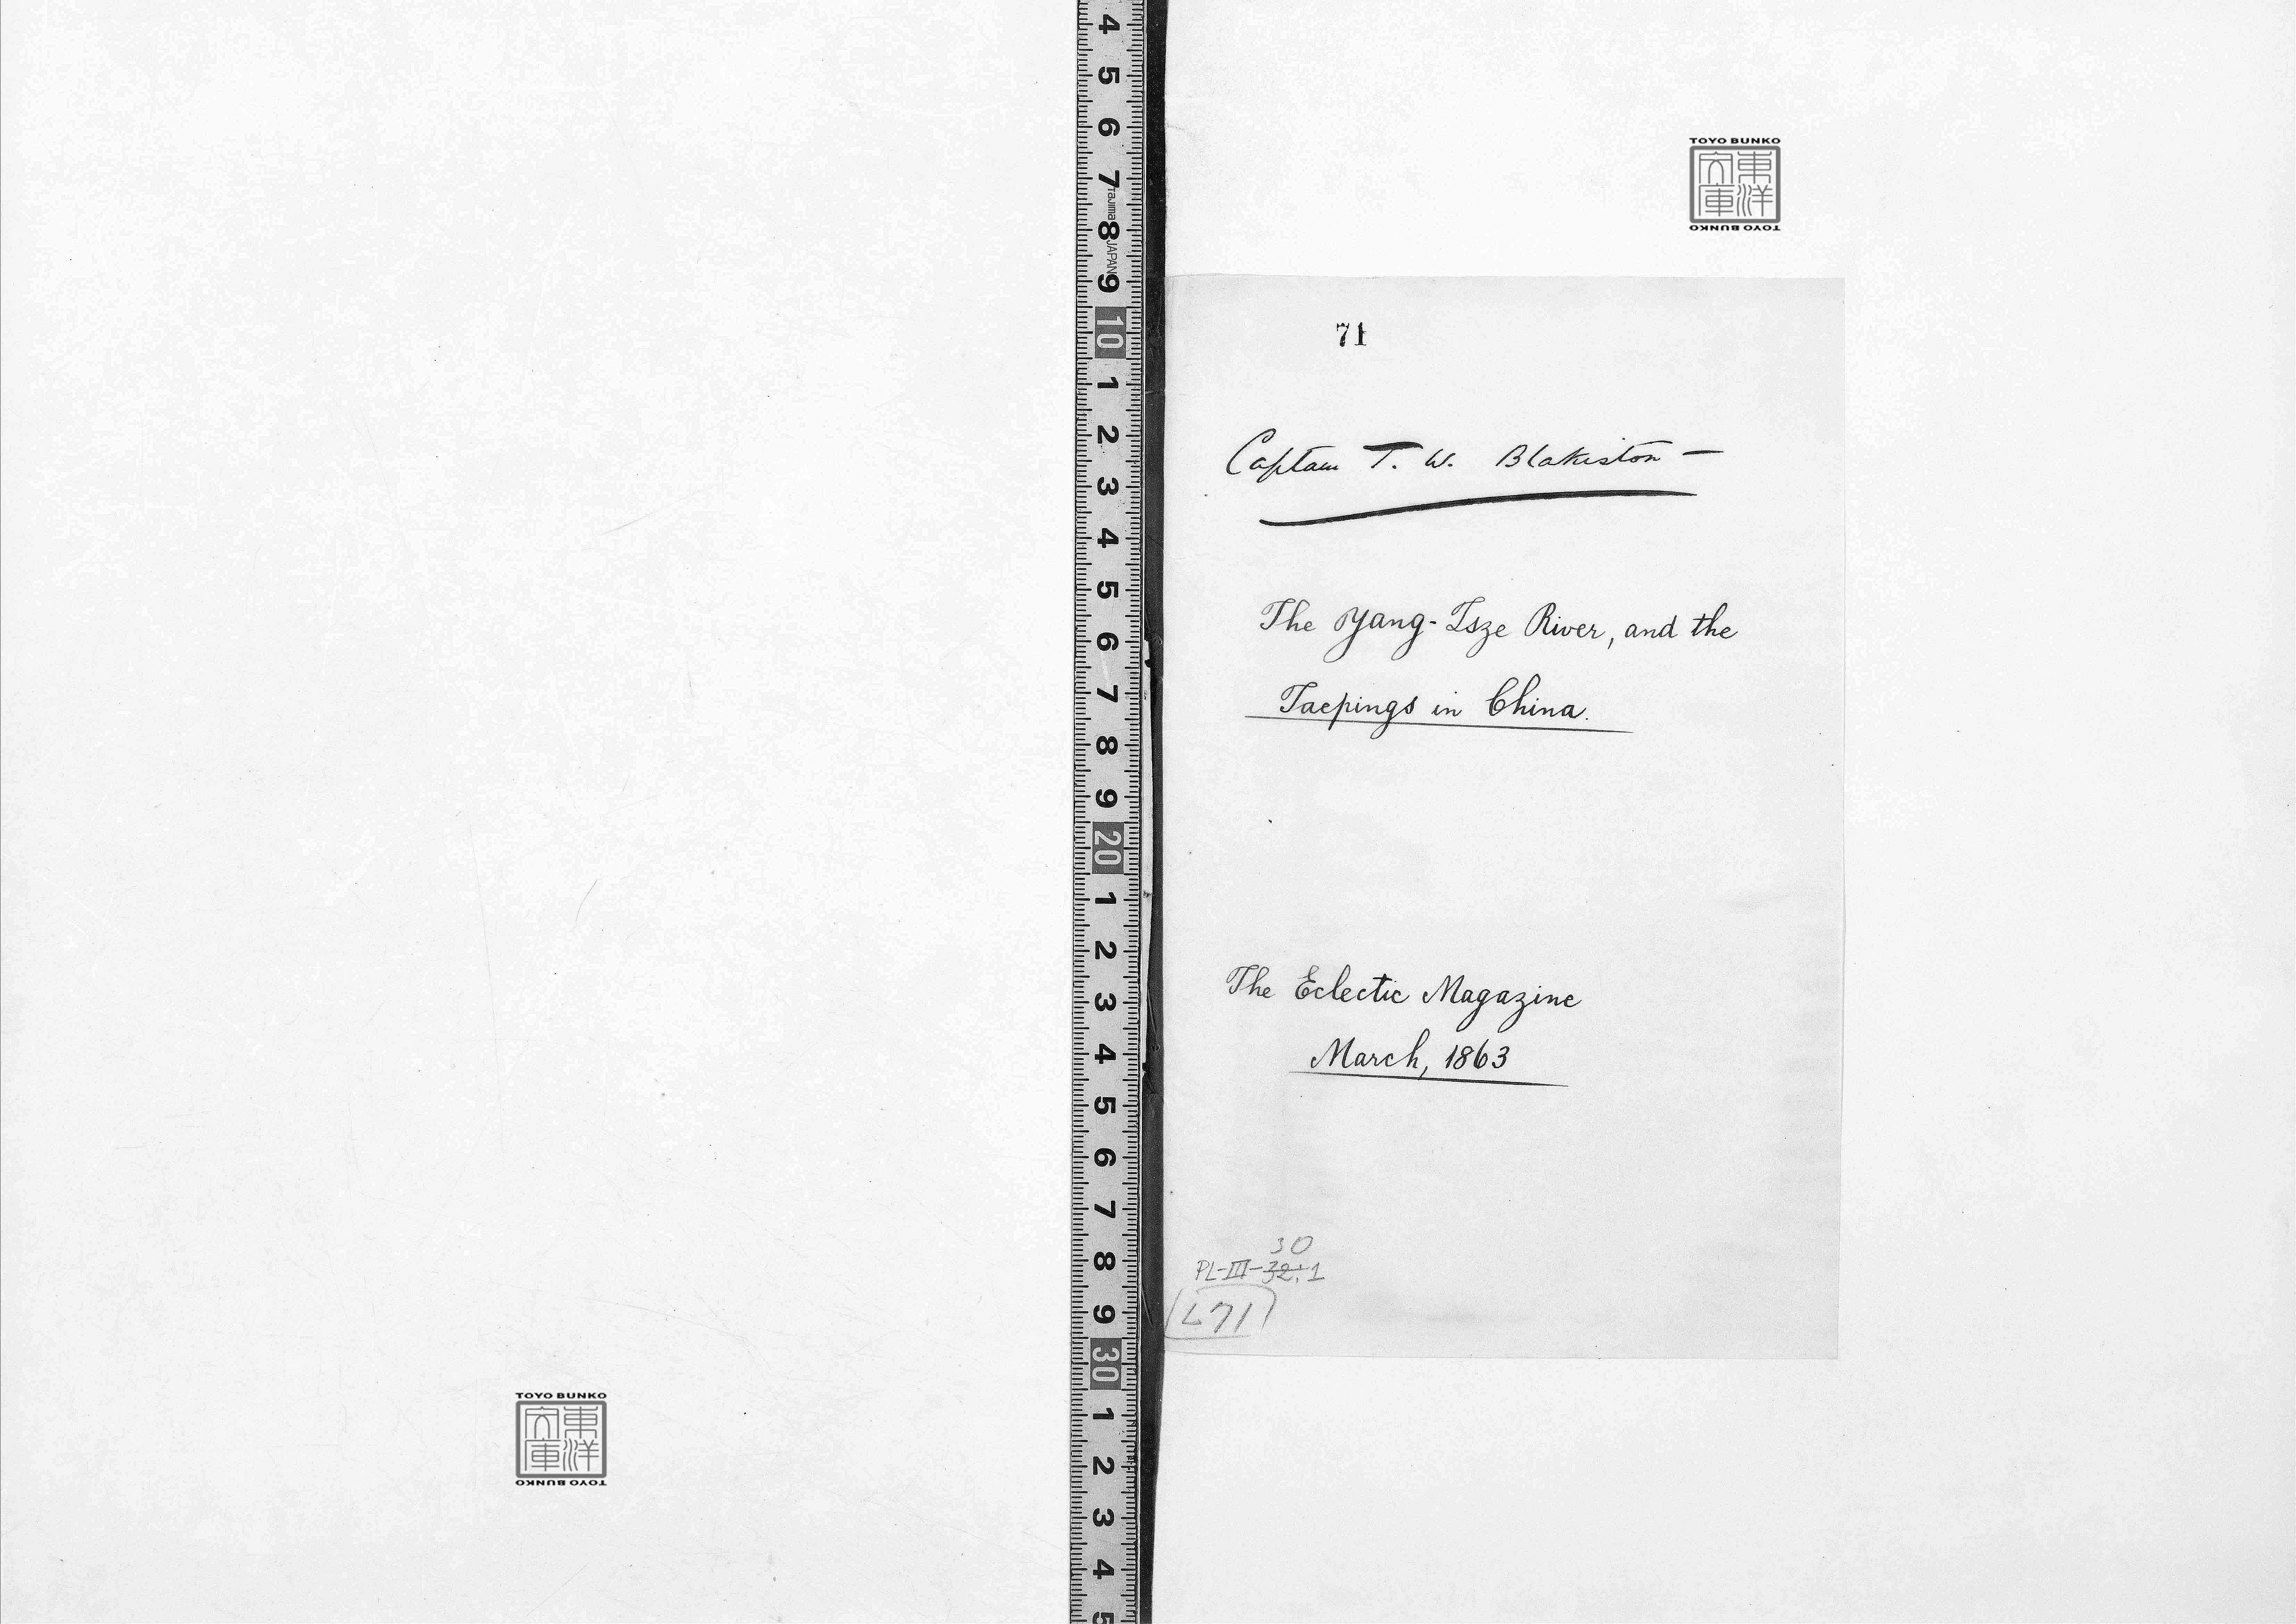 4
5
6
7
Tajima
8
JAPAN
9
10
1
2
3
4
5
6
7
8
9
20
1
2
3
4
5
6
7
8
9
30
1
2
3
4
5
TOYO BUNKO
東洋
文庫
TOYO BUNKO
71
Captain T. W. Blakiston —
The Yang-Tsze River, and the
Taepings in China.
The Eclectic Magazine
March, 1863
30
PL-III-32:1
L71
TOYO BUNKO
東洋
文庫
TOYO BUNKO